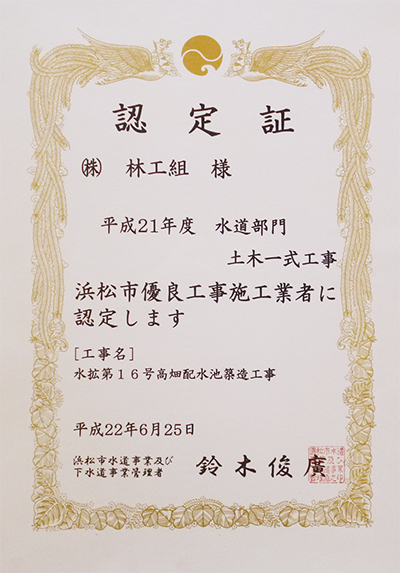 認定証
㈱ 林工組 様
平成21年度 水道部門
土木一式工事
浜松市優良工事施工業者に
認定します
[工事名]
水拡第16号高畑配水池築造工事
平成22年6月25日
浜松市水道事業及び
下水道事業管理者 鈴木俊廣